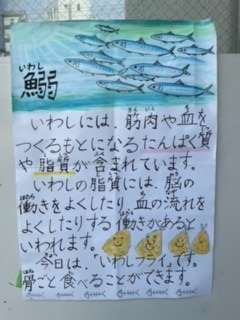 いわし
鰯
いわしには、筋肉や血を
つくるもとになるたんぱく質
や脂質が含まれています。
いわしの脂質には、脳の
働きをよくしたり、血の流れを
よくしたりする働きがあると
いわれます。
今日は、「いわしフライ」です。
骨ごと食べることができます。